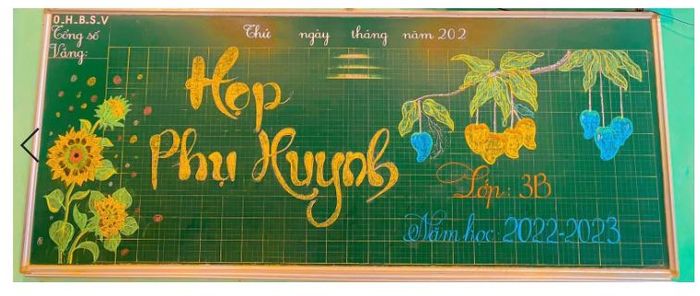 O.H.B.S.V
Tổng số
Vắng:
Thứ ngày tháng năm 202
Họp
Phụ Huynh
Lớp: 3B
Năm học: 2022-2023